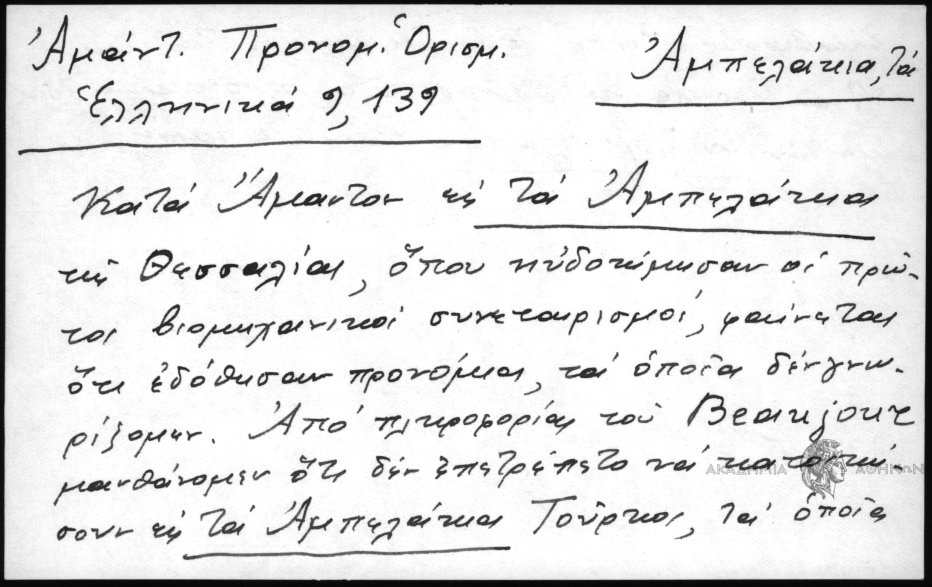 Ἀμάντ. Προνομ. Ὁρισμ.
Ἑλληνικά 9, 139
Ἀμπελάκια, τά
Κατά Ἄμαντον εἰς τά Ἀμπελάκια
τῆς Θεσσαλίας, ὅπου ηὐδοκίμησαν οἱ πρῶ-
τοι βιομηχανικοί συνεταιρισμοί, φαίνεται
ὅτι ἐδόθησαν προνόμια, τά ὁποῖα δέν γνω-
ρίζομεν. Ἀπό πληροφορίας τοῦ Beaujour
μανθάνομεν ὅτι δέν ἐπετρέπετο νά κατοική-
σουν εἰς τά Ἀμπελάκια Τοῦρκοι, τά ὁποῖα
ΑΚΑΔΗΜΙΑ ΑΘΗΝΩΝ